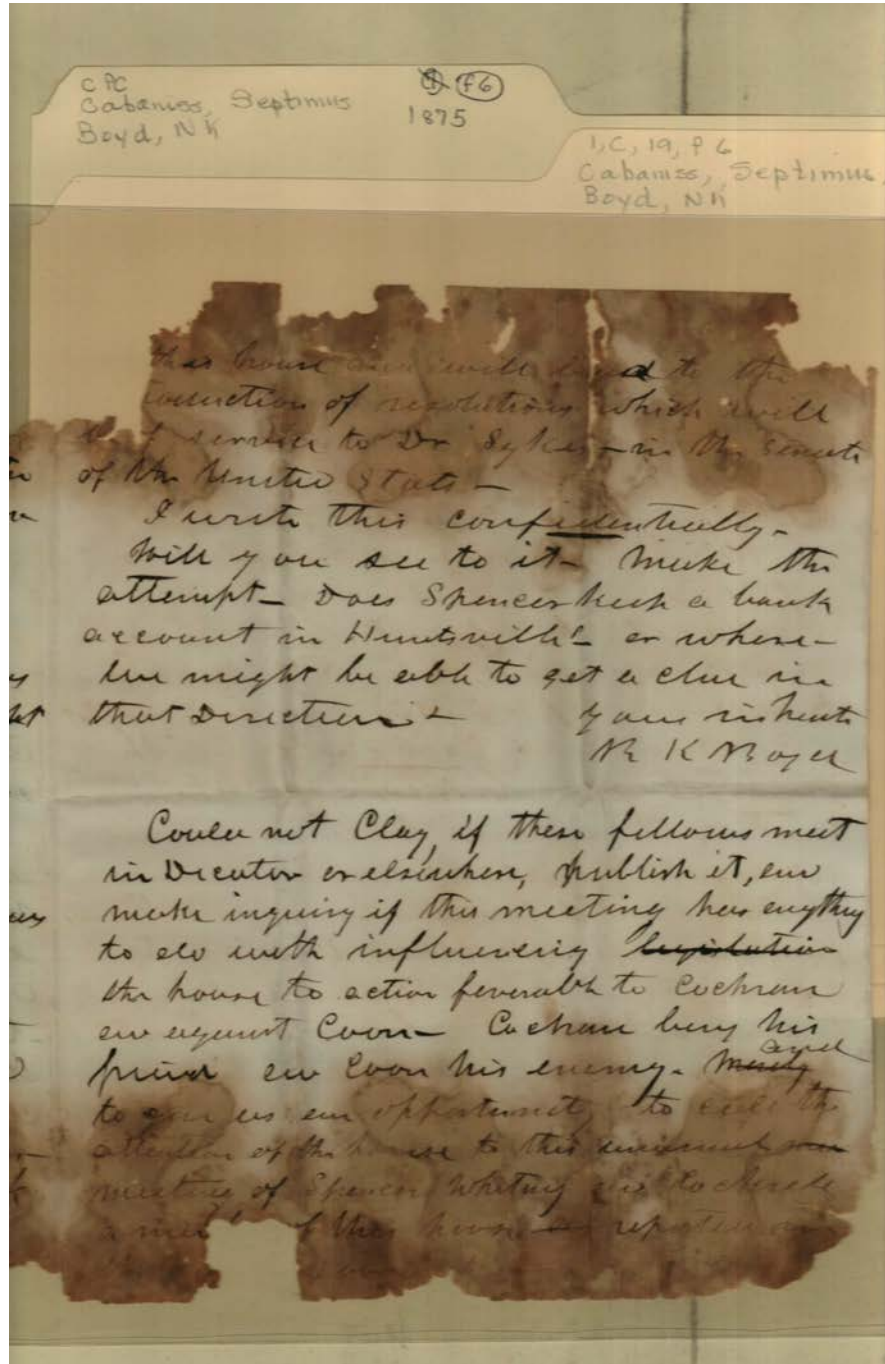 CPC
Cabaniss, Septimus
Boyd, N K
F6
1875
1, C, 19, F 6
Cabaniss, Septimus,
Boyd, N K
this house and will lead to the
of resolutions which will
be of service to Dr Sykes - in the Senate
of the United States -
I write this confidentially -
Will you see to it - Make the
attempt - Does Spencer keep a bank
account in Huntsville - or where -
we might be able to get a clue in
that Direction -
yours in haste
N K Boyd
Could not Clay, if these fellows meet
in Decatur or elsewhere, publish it, and
make inquiry if this meeting has anything
to do with influencing legislation
the house to action favorable to Cochran
and against Coon - Cochran being his
friend and Coon his enemy - merely and
to give us an opportunity to call the
attention of the house to this
meeting of Spencer Whiting and
of this house reported